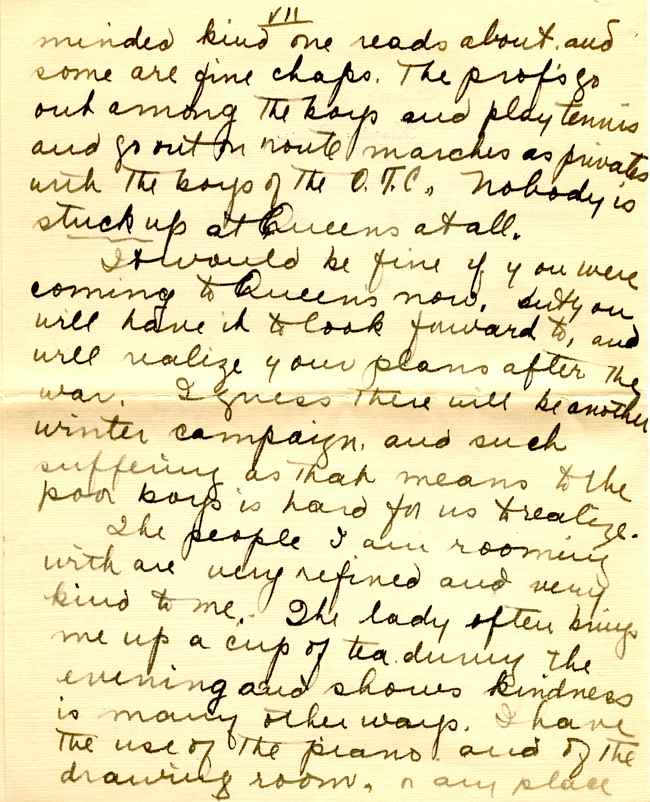 VII
minded kind one reads about. and
some are fine chaps. The prof's go
out among the boys and play tennis
and go out on route marches as privates
with the boys of the O.T.C. Nobody is
stuck up at Queens at all.
It would be fine if you were
coming to Queens now, but you
will have it to look forward to, and
will realize your plans after the
war. I guess there will be another
winter campaign. and such
suffering as that means to the
poor boys is hard for us to realize.
The people I am rooming
with are very refined and very
kind to me. The lady often brings
me up a cup of tea during the
evening and shows kindness
is many other ways. I have
the use of the piano. and of the
drawing room. or any place